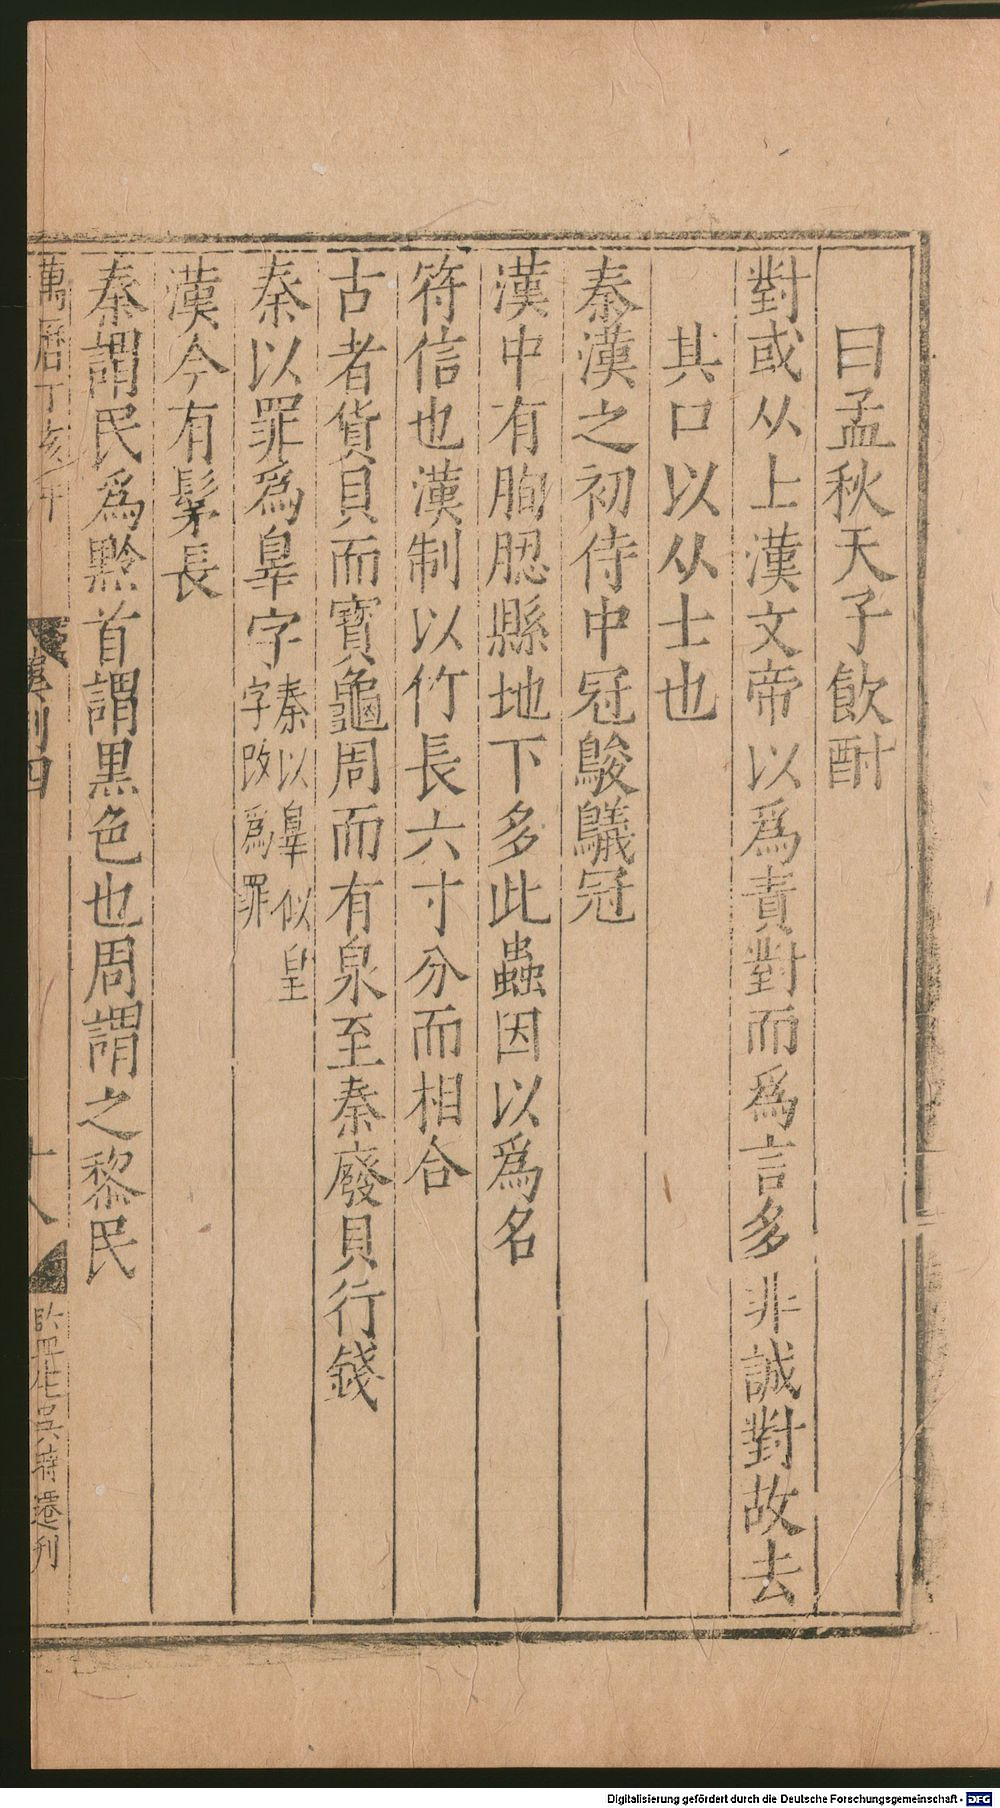 曰孟秋天子飲酎
對或从上漢文帝以爲責對而爲言多非誠對故去
其口以从士也
秦漢之初侍中冠鵔鸃冠
漢中有朐䏰縣地下多此蟲因以爲名
符信也漢制以竹長六寸分而相合
古者貨貝而寶龜周而有泉至秦廢貝行錢
秦以罪爲辠字
秦以辠似皇
字改爲罪
漢令有髳長
秦謂民爲黔首謂黑色也周謂之黎民
萬曆丁亥年
十八
Digitalisierung gefördert durch die Deutsche Forschungsgemeinschaft - DFG